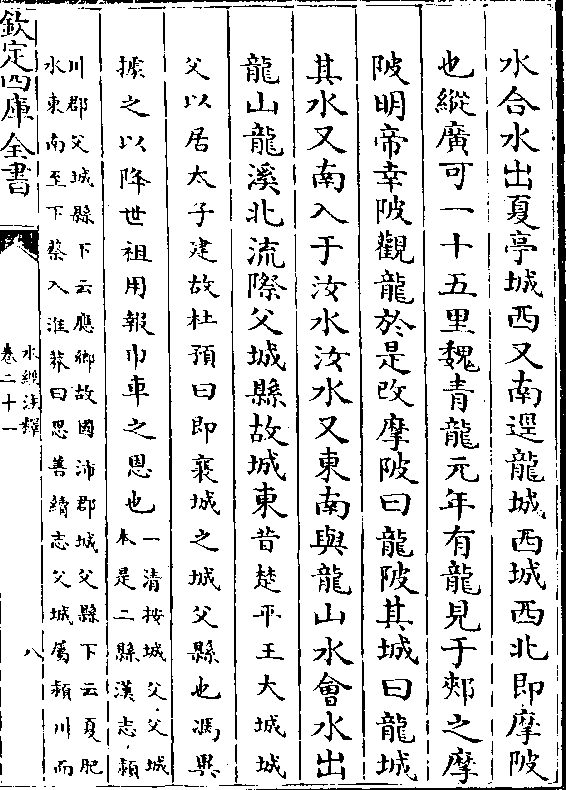 水合水出夏亭城西又南逕龍城西城西北即摩陂
也縱廣可一十五里魏青龍元年有龍見于郟之摩
陂明帝幸陂觀龍於是改摩陂曰龍陂其城曰龍城
其水又南入于汝水汝水又東南與龍山水會水出
龍山龍溪北流際父城縣故城東昔楚平王大城城
父以居太子建故杜預曰即襄城之城父縣也馮異
據之以降世祖用報巾車之恩也一清按城父父城
本是二縣漢志潁
川郡父城縣下云應鄉故國沛郡城父縣下云夏肥
水東南至下蔡入淮莽曰思善續志父城屬潁川而
欽定四庫全書
水經注釋
卷二十一
八